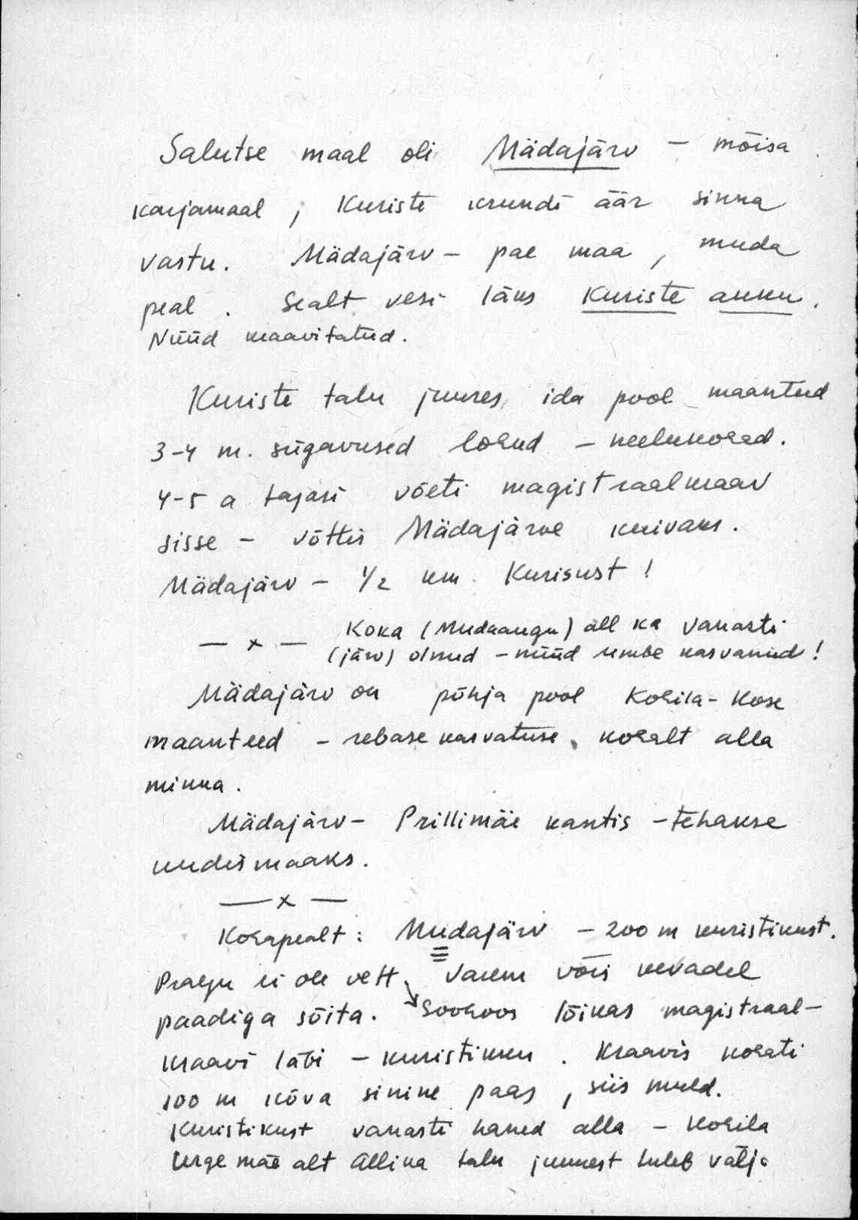 Salutse maal oli Mädajärv – mõisa
karjamaal, Kuriste krundi äär sinna
vastu. Mädajärv – pae maa, muda
peal. Sealt vesi läks Kuriste auku.
Nüüd kraavitatud.
Kuriste talu juures, ida pool maanteed
3-4 m. sügavused lohud – neelukohad.
4-5 a tagasi võeti magistraalkraav
sisse – võttis Mädajärve kuivaks.
Mädajärv – 1/2 km. Kurisust!
— x — Koka (Mudaaugu) all ka vanasti
(järv) olnud – nüüd umbe kasvanud!
Mädajärv on põhja pool Kohila-Kose
maanteed – rebase kasvatuse kohalt alla
minna.
Mädajärv – Prillimäe kantis – tehakse
uudismaaks.
— x —
Kohapealt: Mudajärv – 200 m kuristikust.
Praegu ei ole vett, varem võis kevadel
paadiga sõita. Soohoos lõikas magistraal-
kraavi läbi – kuristikku. Kraavis kohati
100 m kõva sinine paas, siis muld.
Kuristikust vanasti haned alla – Kohila
Urge mäe alt Allika talu juurest tuleb välja